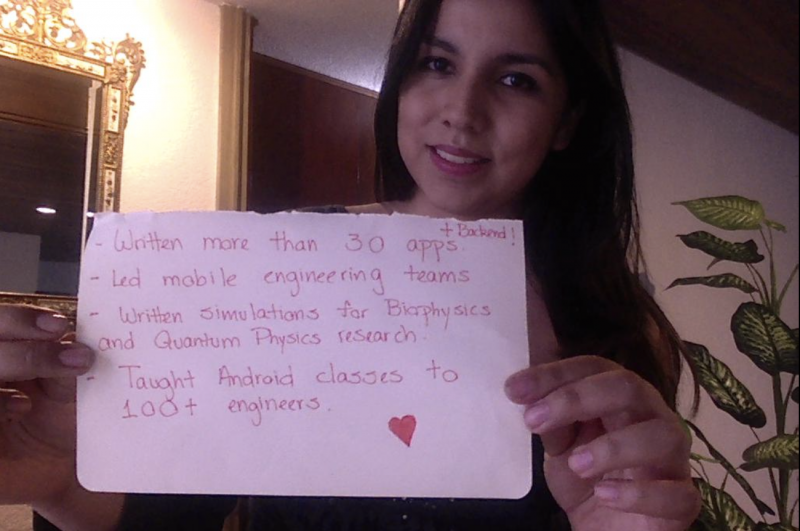 + Backend!
- Written more than 30 apps.
- Led mobile engineering teams
- Written simulations for Biophysics
and Quantum Physics research.
- Taught Android classes to
100+ engineers.